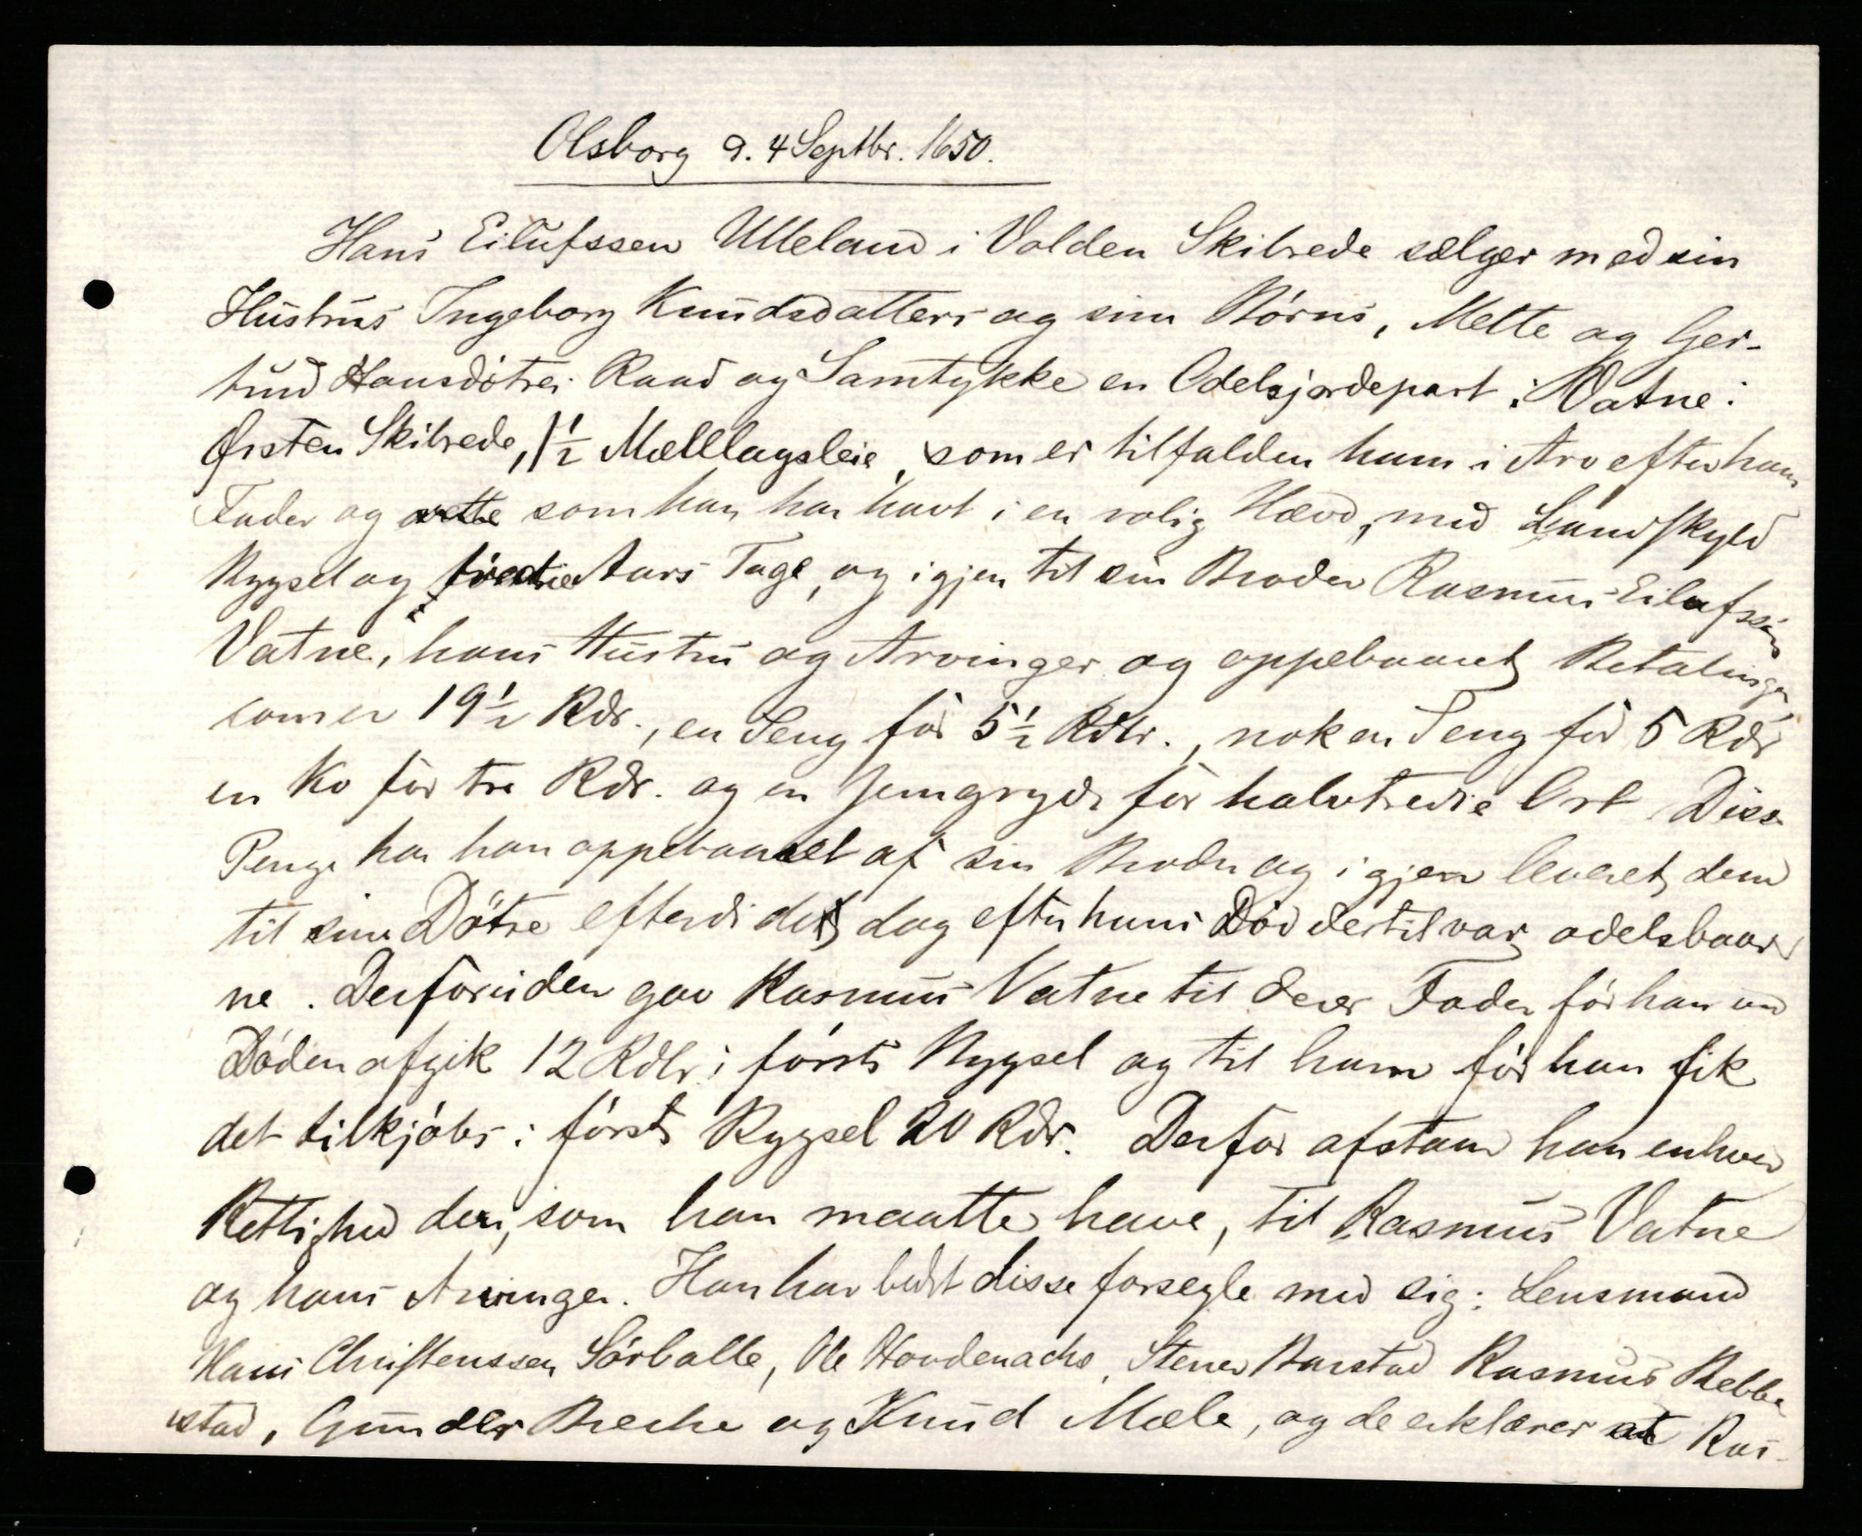 Olsborg d. 4 Septbr. 1650.
Hans Eilufssen Ulleland i Volden Skibrede sælger med sin
Hustrus Ingeborg Knudsdatters og sine Børns, Mette og Ger-
trud Hansdøtres Raad og Samtykke en Odelsjordepart i Vatne i
Ørsten Skibrede, 1 1/2 Mælllagsleie, som er tilfalden ham i Arv efter hans
Fader og som han har havt i en rolig Hævd, med Landskyld
Bygsel og tredie Aars Tage, og igjen til sin Broder Rasmus Eilufssøn
Vatne, hans Hustru og Arvinger og oppebaaret Betalingen,
som er 19 1/2 Rdr., en Seng for 5 1/2 Rdlr., nok en Seng for 5 Rdr
en Ko for tre Rdr. og en Jerngryde for halvtredie Ort. Disse
Penge har han oppebaaret af sin Broder og igjen leveret dem
til sine Døtre efterdi de dog efter hans Død dertil var odelsbaar-
ne. Desforuden gav Rasmus Vatne til deres Fader før han ved
Døden afgik 12 Rdlr i første Bygsel og til ham før han fik
det tilkjøbs i første Bygsel 20 Rdr. Derfor afstaar han enhver
Rettighed der, som han maatte have, til Rasmus Vatne
og hans Arvinger. Han har bedt disse forsegle med sig: Lensmand
Hans Christenssen Sørballe, Ole Hovdenacke, Stener Barstad Rasmus Bebbe
stad, Gunder Brecke og Knud Mæle, og de erklærer at Ras-